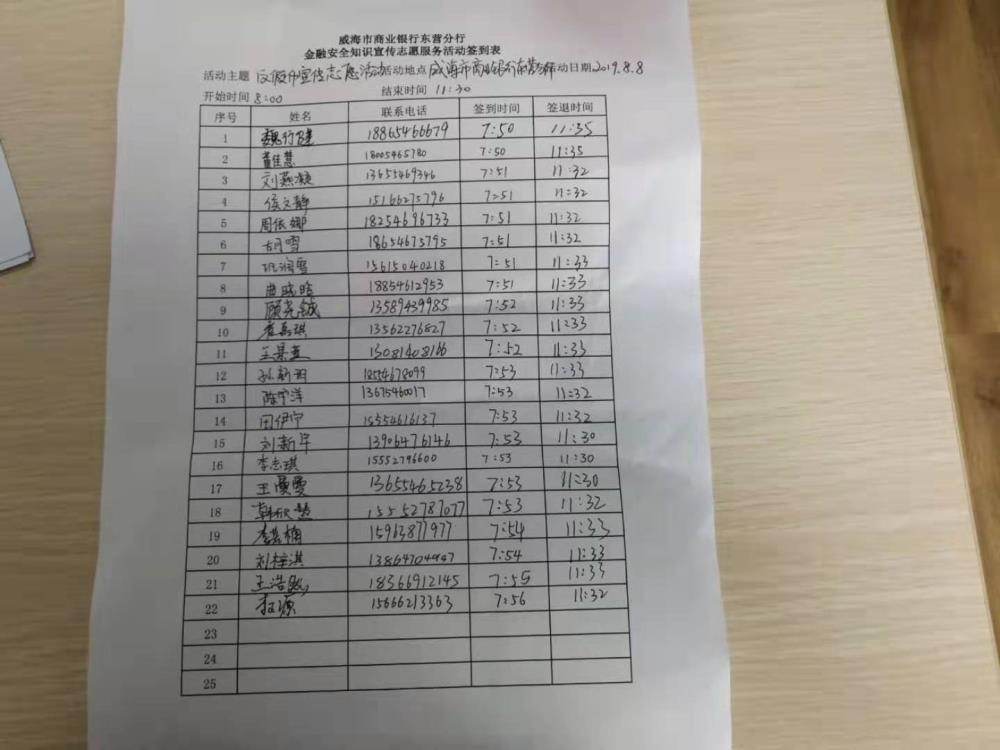 威海市商业银行东营分行
金融安全知识宣传志愿服务活动签到表
活动主题 反假币宣传志愿活动 活动地点 威海市商业银行东营分行 活动日期 2019.8.8
开始时间 8:00 结束时间 11:30
序号 姓名 联系电话 签到时间 签退时间
1 魏行健 18865466679 7:50 11:35
2 董佳慧 18005465780 7:50 11:35
3 刘燕凝 13655469346 7:51 11:32
4 侯文静 15166275796 7:51 11:32
5 周依娜 18254696733 7:51 11:32
6 胡雪 18654675795 7:51 11:32
7 15615040218 7:51 11:33
8 曲晓晗 18854612953 7:51 11:33
9 顾尧铖 13589439985 7:52 11:33
10 13562276827 7:52 11:33
11 王景 13081408166 7:52 11:33
12 孙新 18554678099 7:53 11:33
13 陈宇洋 13675460017 7:53 11:32
14 田伊宁 15554616137 7:53 11:32
15 刘新华 13906476146 7:53 11:30
16 李志琪 15552796600 7:53 11:30
17 王 13655465238 7:53 11:30
18 韩欣 15552787077 7:53 11:32
19 15963877977 7:54 11:33
20 刘梓淇 7:54 11:33
21 王浩 18366912145 7:55 11:33
22 源 15666213363 7:56 11:32
23
24
25